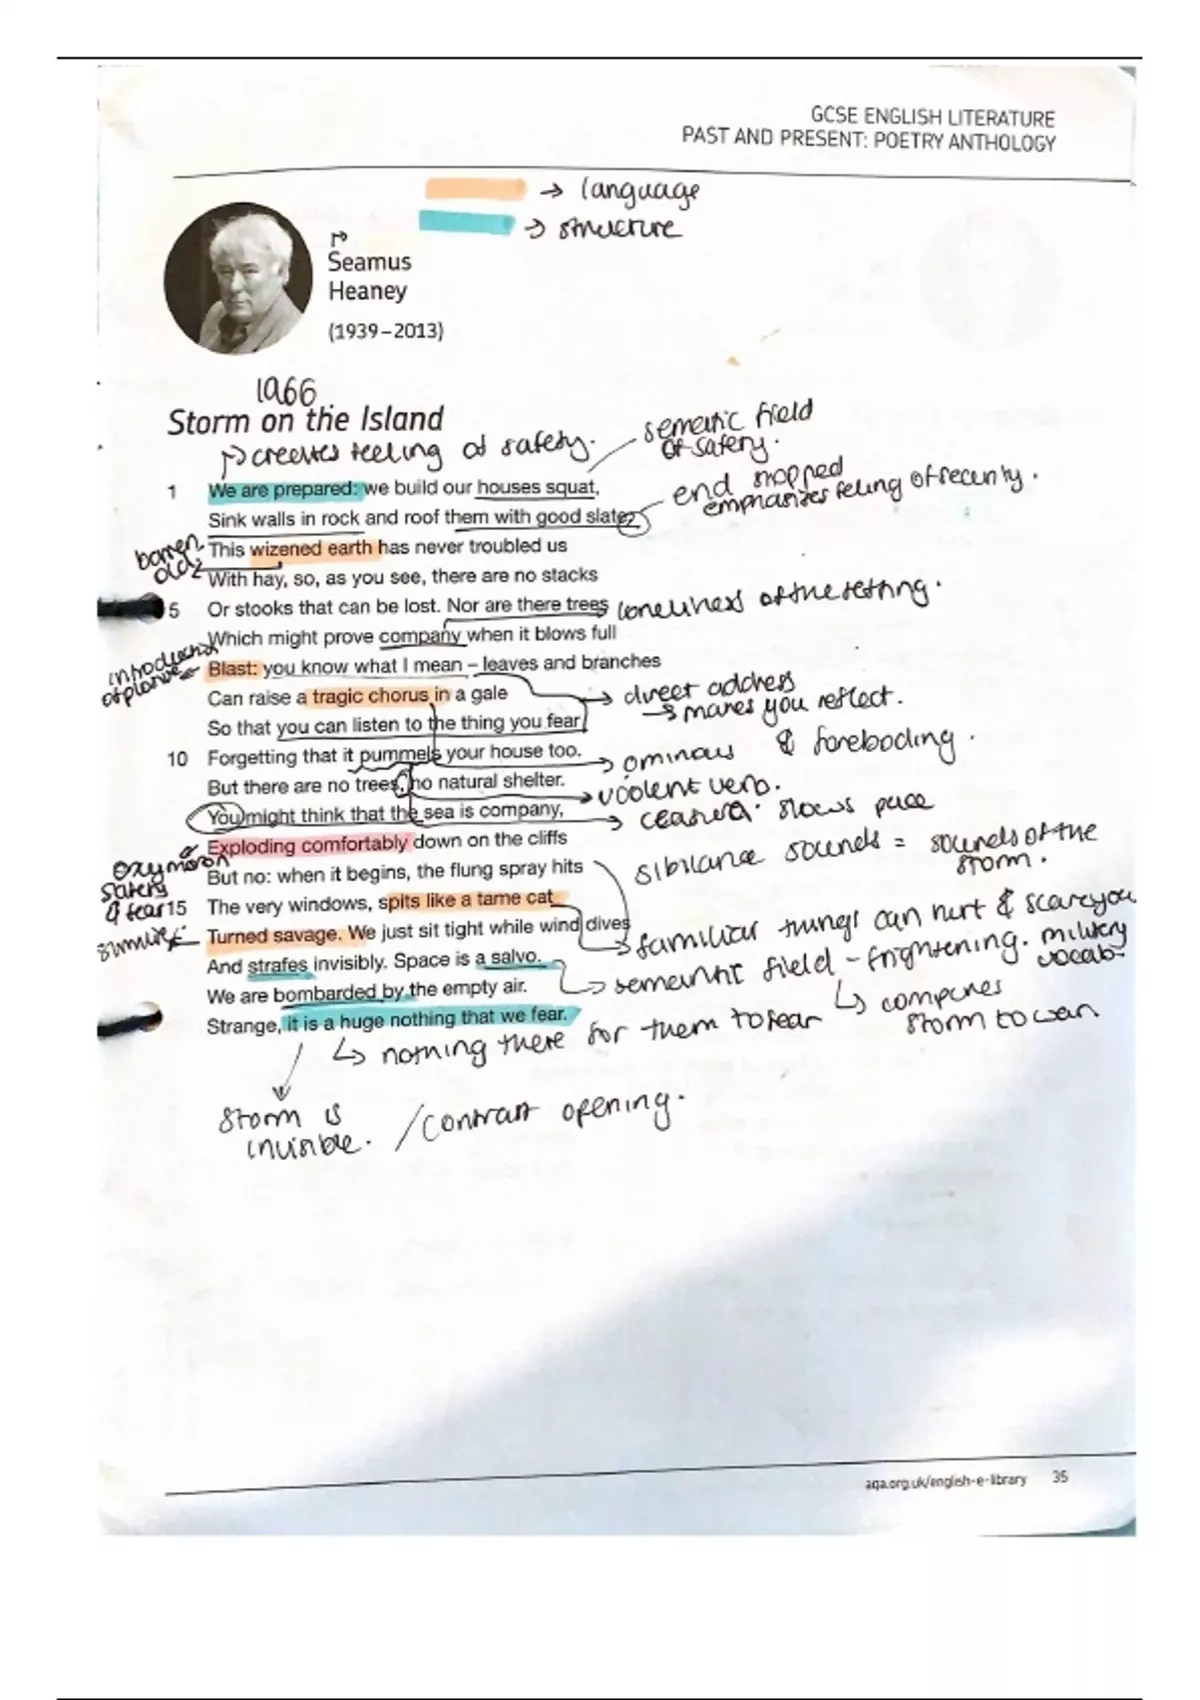 GCSE ENGLISH LITERATURE
PAST AND PRESENT: POETRY ANTHOLOGY
→ language
→ structure
Seamus
Heaney
(1939–2013)
1966
Storm on the Island
→ creates feeling of safety.
semantic field
of safety.
1 We are prepared: we build our houses squat,
end stopped
emphasizes feeling of security.
Sink walls in rock and roof them with good slate.
barren
old
This wizened earth has never troubled us
With hay, so, as you see, there are no stacks
5 Or stooks that can be lost. Nor are there trees
loneliness of the setting.
Which might prove company when it blows full
Blast: you know what I mean – leaves and branches
Can raise a tragic chorus in a gale
direct address
→ makes you reflect.
So that you can listen to the thing you fear
10 Forgetting that it pummels your house too.
ominous & foreboding.
But there are no trees, no natural shelter.
violent verb.
You might think that the sea is company,
ceasura. slows pace
Exploding comfortably down on the cliffs
oxymoron
safety
& fear
sibilance sounds = sounds of the
storm.
But no: when it begins, the flung spray hits
15 The very windows, spits like a tame cat
Turned savage. We just sit tight while wind dives
familiar things can hurt & scare you
And strafes invisibly. Space is a salvo.
semantic field – frightening. military
vocab.
We are bombarded by the empty air.
↳ compares
storm to war
Strange, it is a huge nothing that we fear.
↳ nothing there for them to fear
storm is
invisible.
/contrast opening.
aqa.org.uk/english-e-library 35